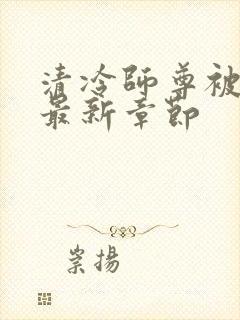 清冷师尊被
最新章节
崇揚